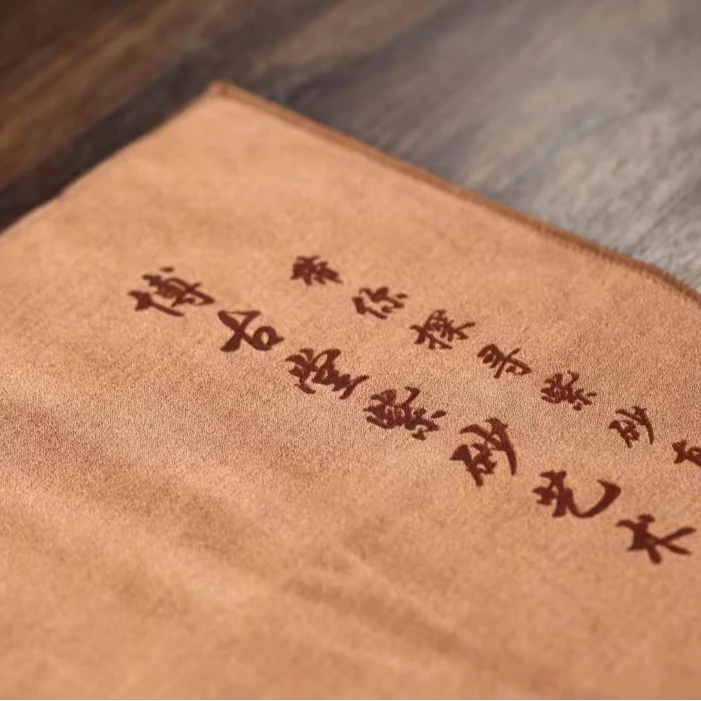 带你探寻紫砂
博古堂紫砂艺术